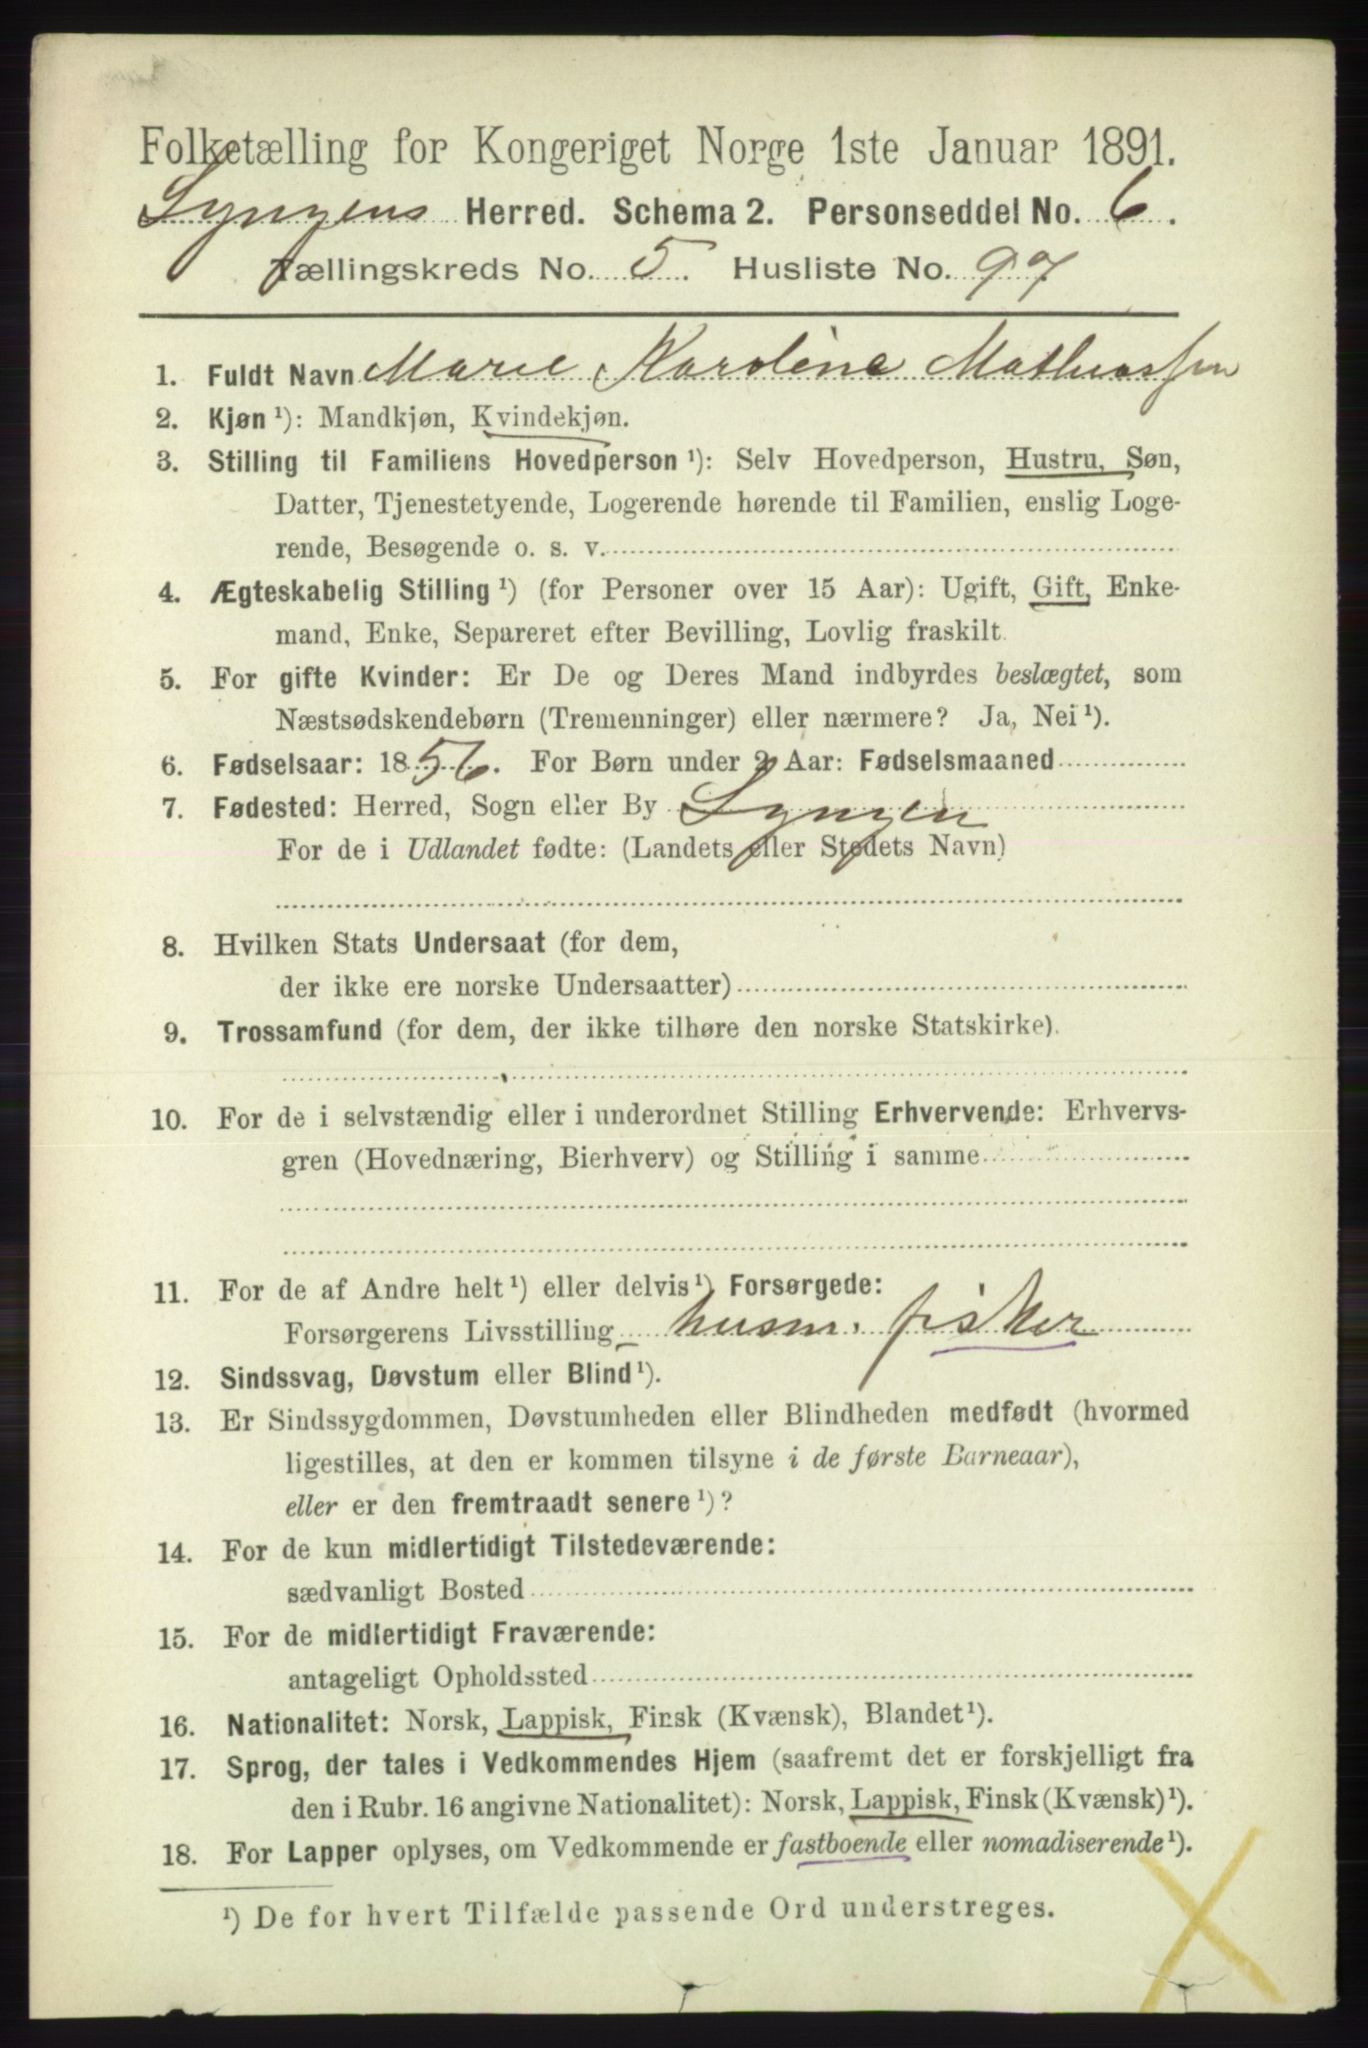 Folketælling for Kongeriget Norge 1ste Januar 1891.
Lyngens Herred. Schema 2. Personseddel No. 6.
Tællingskreds No. 5. Husliste No. 97
1. Fuldt Navn Marie Karoline Mathiassen
2. Kjøn ¹): Mandkjøn, Kvindekjøn.
3. Stilling til Familiens Hovedperson ¹): Selv Hovedperson, Hustru, Søn,
Datter, Tjenestetyende, Logerende hørende til Familien, enslig Loge-
rende, Besøgende o. s. v.
4. Ægteskabelig Stilling ¹) (for Personer over 15 Aar): Ugift, Gift, Enke-
mand, Enke, Separeret efter Bevilling, Lovlig fraskilt.
5. For gifte Kvinder: Er De og Deres Mand indbyrdes beslægtet, som
Næstsødskendebørn (Tremenninger) eller nærmere? Ja, Nei ¹).
6. Fødselsaar: 1856. For Børn under 2 Aar: Fødselsmaaned
7. Fødested: Herred, Sogn eller By Lyngen
For de i Udlandet fødte: (Landets eller Stedets Navn)
8. Hvilken Stats Undersaat (for dem,
der ikke ere norske Undersaatter)
9. Trossamfund (for dem, der ikke tilhøre den norske Statskirke).
10. For de i selvstændig eller i underordnet Stilling Erhvervende: Erhvervs-
gren (Hovednæring, Bierhverv) og Stilling i samme
11. For de af Andre helt ¹) eller delvis ¹) Forsørgede:
Forsørgerens Livsstilling husm. fisker
12. Sindssvag, Døvstum eller Blind ¹).
13. Er Sindssygdommen, Døvstumheden eller Blindheden medfødt (hvormed
ligestilles, at den er kommen tilsyne i de første Barneaar),
eller er den fremtraadt senere ¹)?
14. For de kun midlertidigt Tilstedeværende:
sædvanligt Bosted
15. For de midlertidigt Fraværende:
antageligt Opholdssted
16. Nationalitet: Norsk, Lappisk, Finsk (Kvænsk), Blandet ¹).
17. Sprog, der tales i Vedkommendes Hjem (saafremt det er forskjelligt fra
den i Rubr. 16 angivne Nationalitet): Norsk, Lappisk, Finsk (Kvænsk) ¹).
18. For Lapper oplyses, om Vedkommende er fastboende eller nomadiserende ¹).
¹) De for hvert Tilfælde passende Ord understreges.